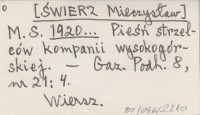 [ŚWIERZ Mieczysław]
M. S. 1920... Pieśń strzel-
ców kompanii wysokogór-
skiej. – Gaz. Podh. 8,
nr 21: 4.
Wiersz.